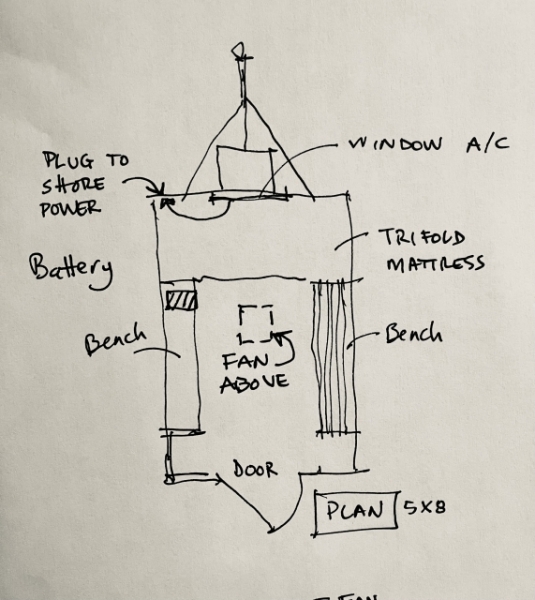 WINDOW A/C
PLUG TO
SHORE
POWER
TRIFOLD
MATTRESS
Battery
Bench
Bench
FAN
ABOVE
DOOR
PLAN 5X8
FAN